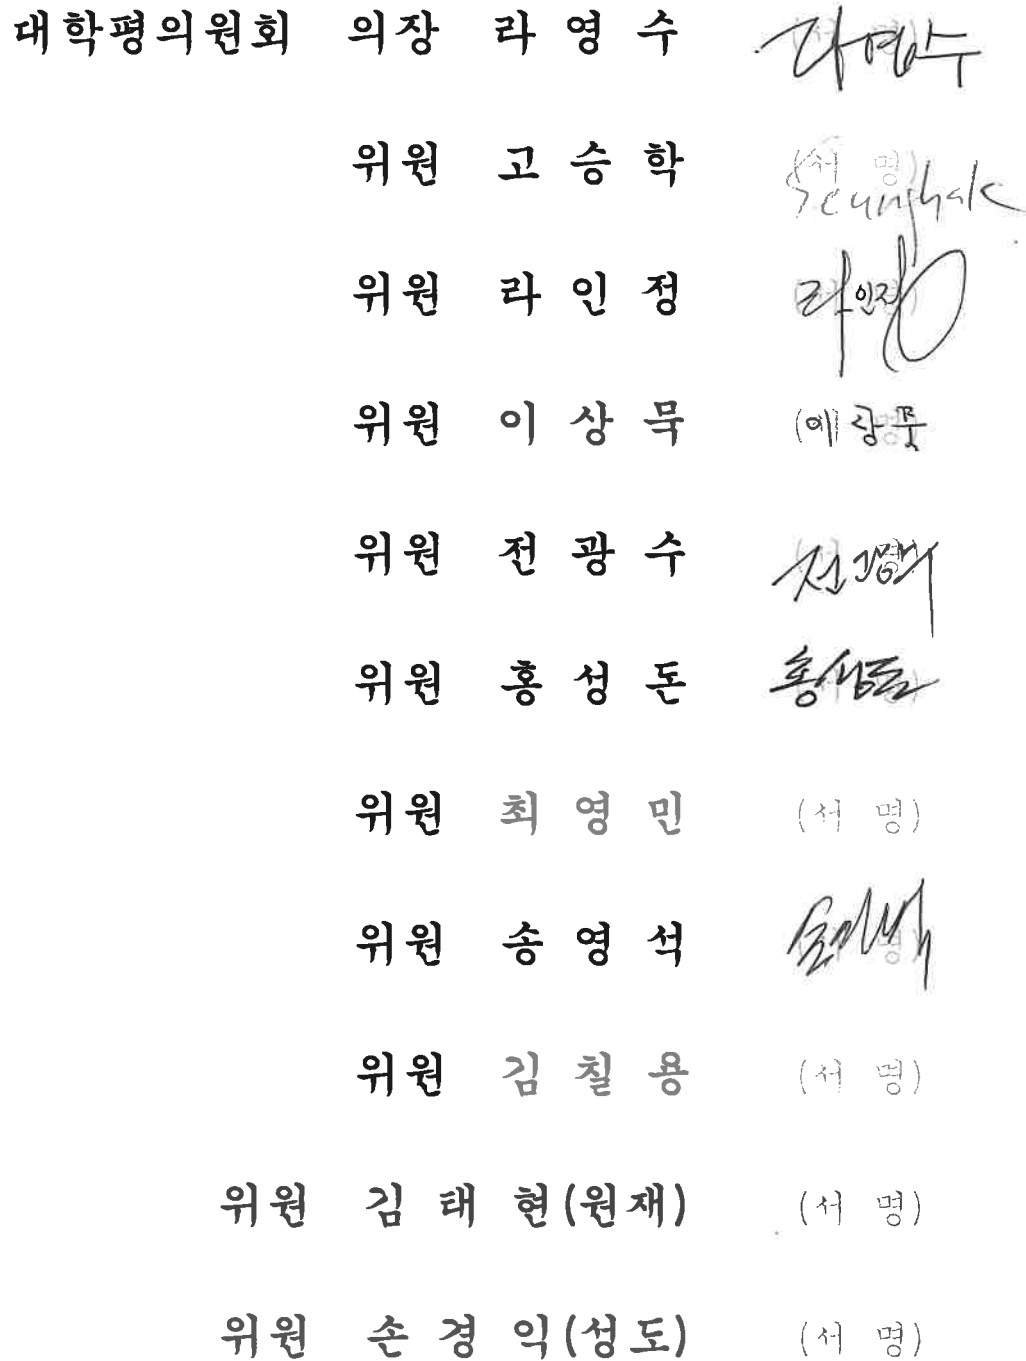 대학평의원회 의장 라 영 수 라영수
위원 고 승 학 (서 명) Seunghak
위원 라 인 정 라인정
위원 이 상 묵 (이)상묵
위원 전 광 수 전광수
위원 홍 성 돈 홍성돈
위원 최 영 민 (서 명)
위원 송 영 석
위원 김 칠 용 (서 명)
위원 김 태 현(원재) (서 명)
위원 손 경 익(성도) (서 명)